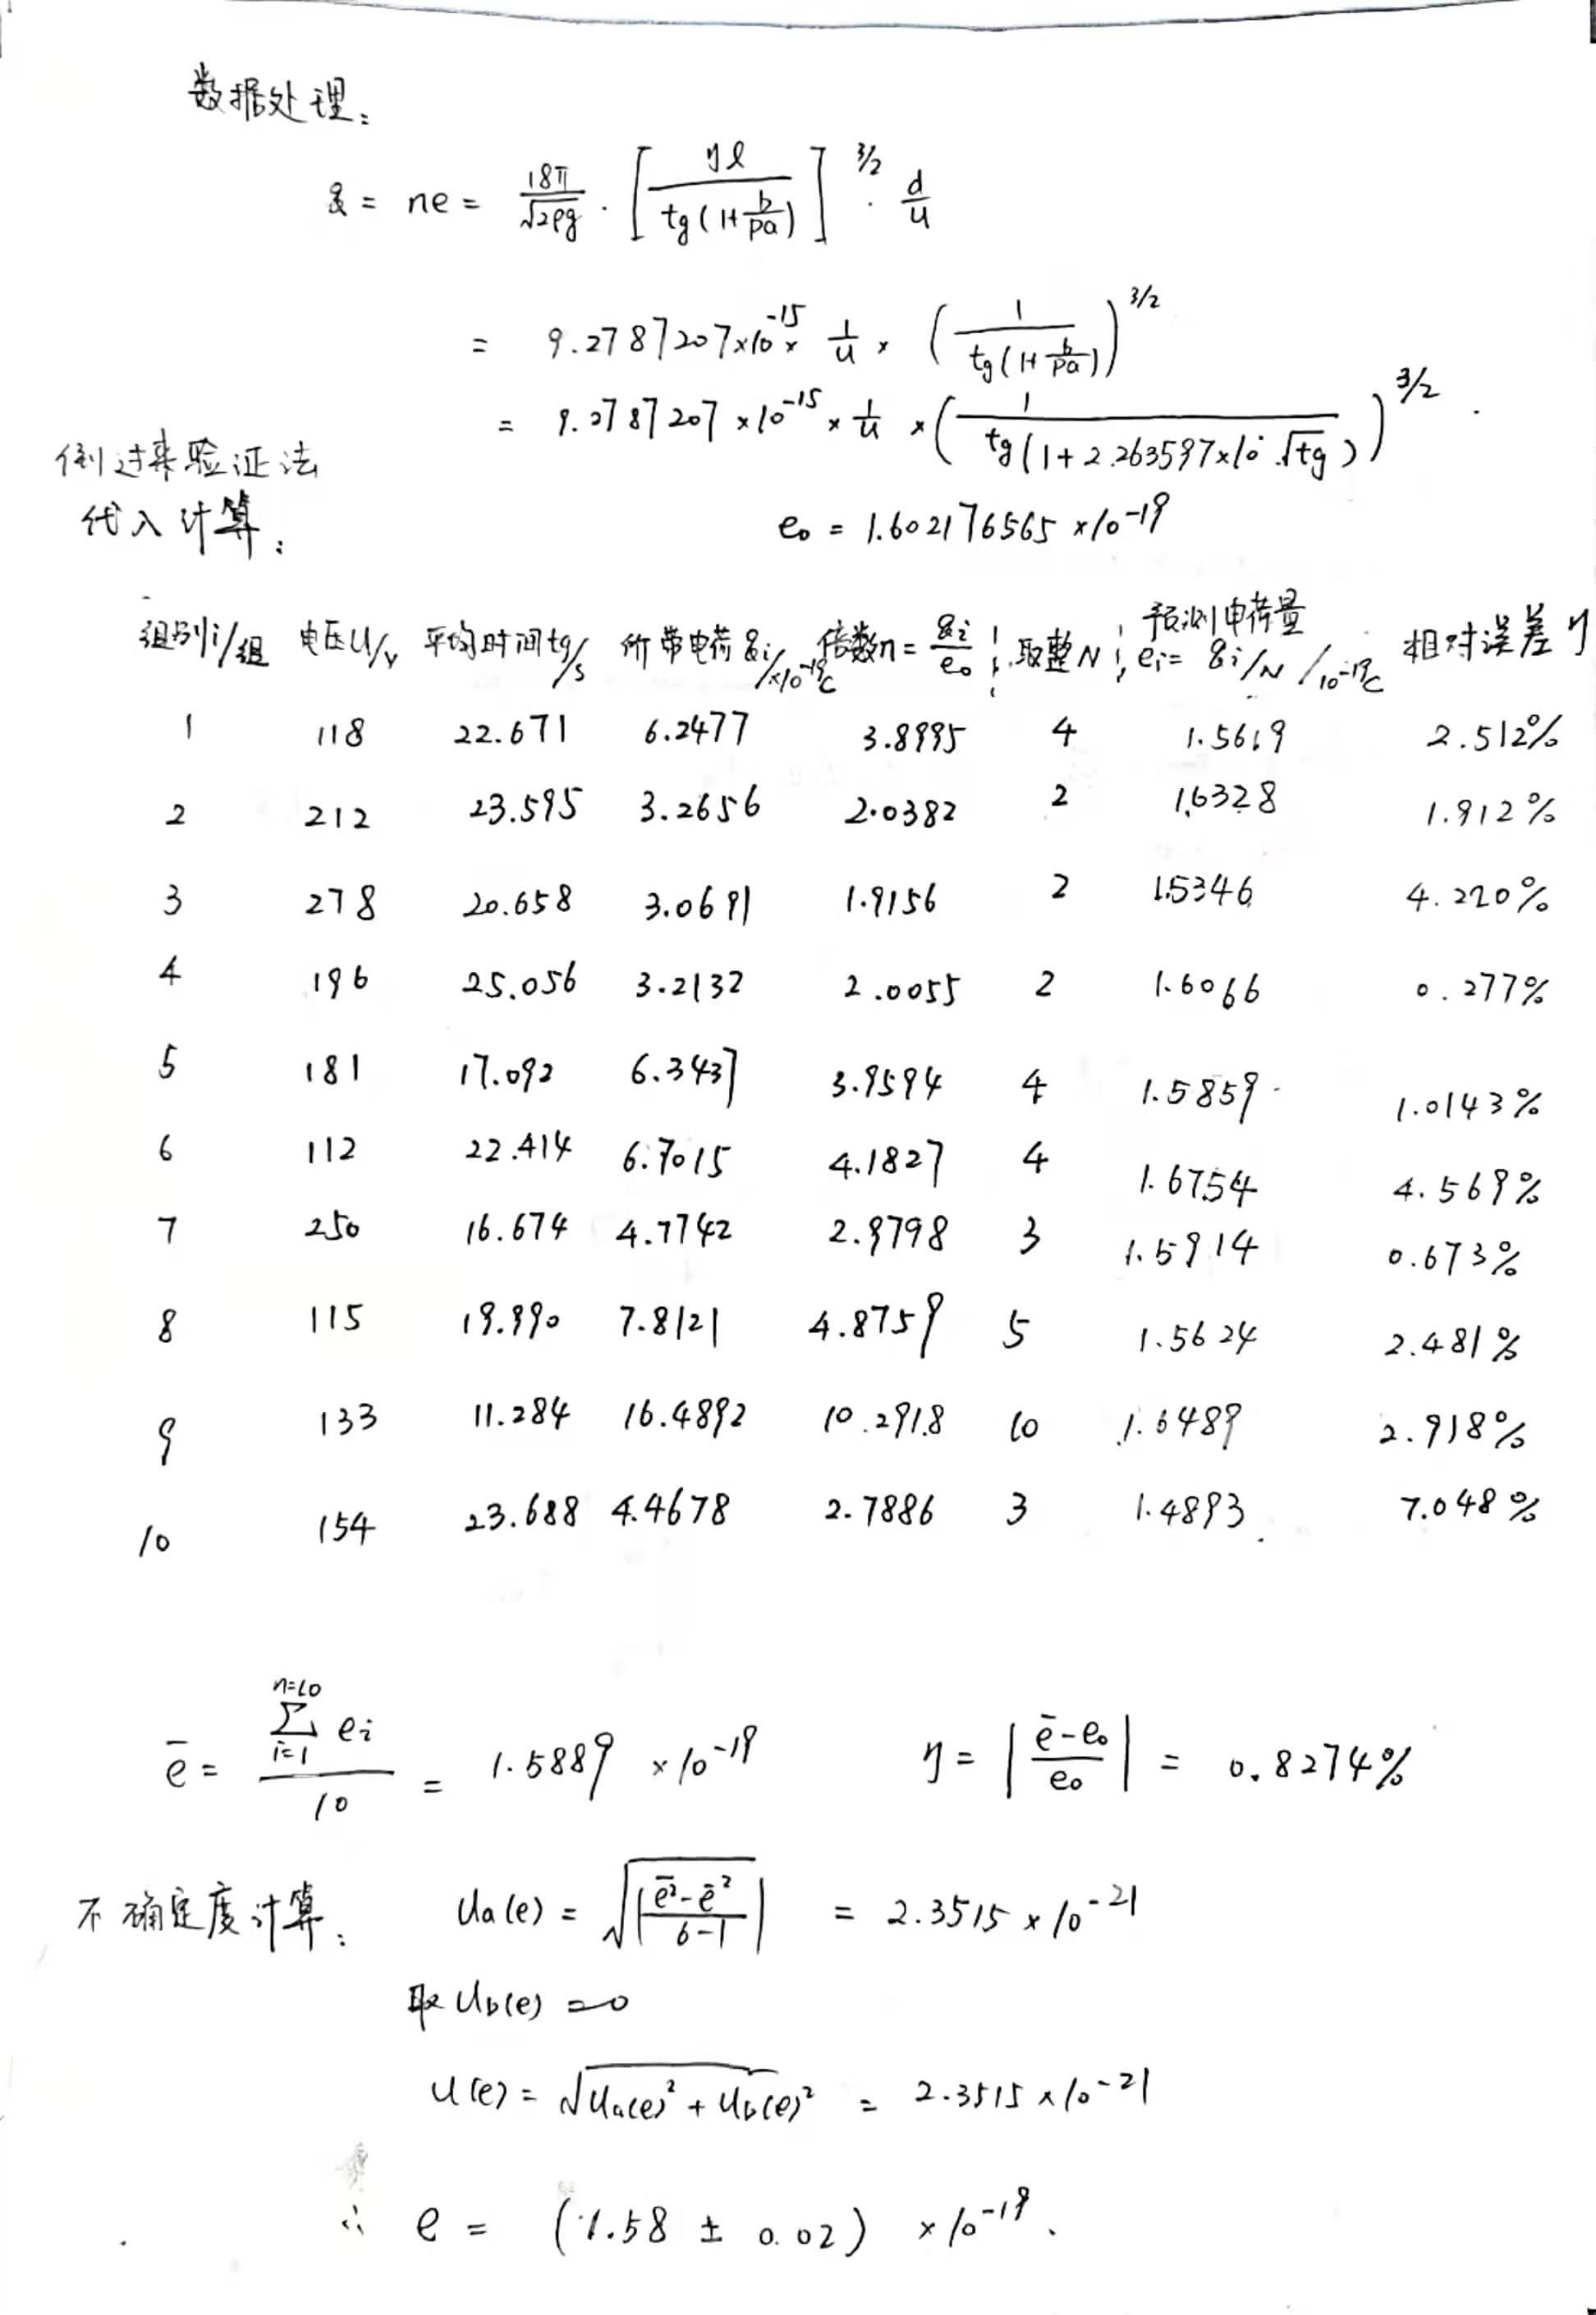 数据处理:
q = ne = 18π/√2ρg · [ηl / tg(1+b/pa)]^3/2 · d/u
= 9.2787207×10^-15 × 1/u × (1 / tg(1+b/pa))^3/2
= 9.2787207×10^-15 × 1/u × (1 / tg(1+2.263597×10 √tg))^3/2
倒过来验证法
代入计算: e₀ = 1.602176565×10^-19
组别i/组 电压U/V 平均时间tg/s 所带电荷qi/×10^-19C 倍数n=qi/e₀ 取整N 预测电荷量ei=qi/N /10^-19C 相对误差η
1 118 22.671 6.2477 3.8995 4 1.5619 2.512%
2 212 23.595 3.2656 2.0382 2 1.6328 1.912%
3 278 20.658 3.0691 1.9156 2 1.5346 4.220%
4 196 25.056 3.2132 2.0055 2 1.6066 0.277%
5 181 17.092 6.3437 3.9594 4 1.5859 1.0143%
6 112 22.414 6.7015 4.1827 4 1.6754 4.569%
7 250 16.674 4.7742 2.9798 3 1.5914 0.673%
8 115 19.990 7.8121 4.8759 5 1.5624 2.481%
9 133 11.284 16.4892 10.2918 10 1.6489 2.918%
10 154 23.688 4.4678 2.7886 3 1.4893 7.048%
ē = Σ(i=1, n=10) ei / 10 = 1.5889 ×10^-19 η = |(ē-e₀)/e₀| = 0.8274%
不确定度计算: Ua(e) = √|(e̅²-ē²)/(6-1)| = 2.3515×10^-21
取Ub(e)=0
U(e) = √Ua(e)²+Ub(e)² = 2.3515×10^-21
∴ e = (1.58 ± 0.02) ×10^-19.